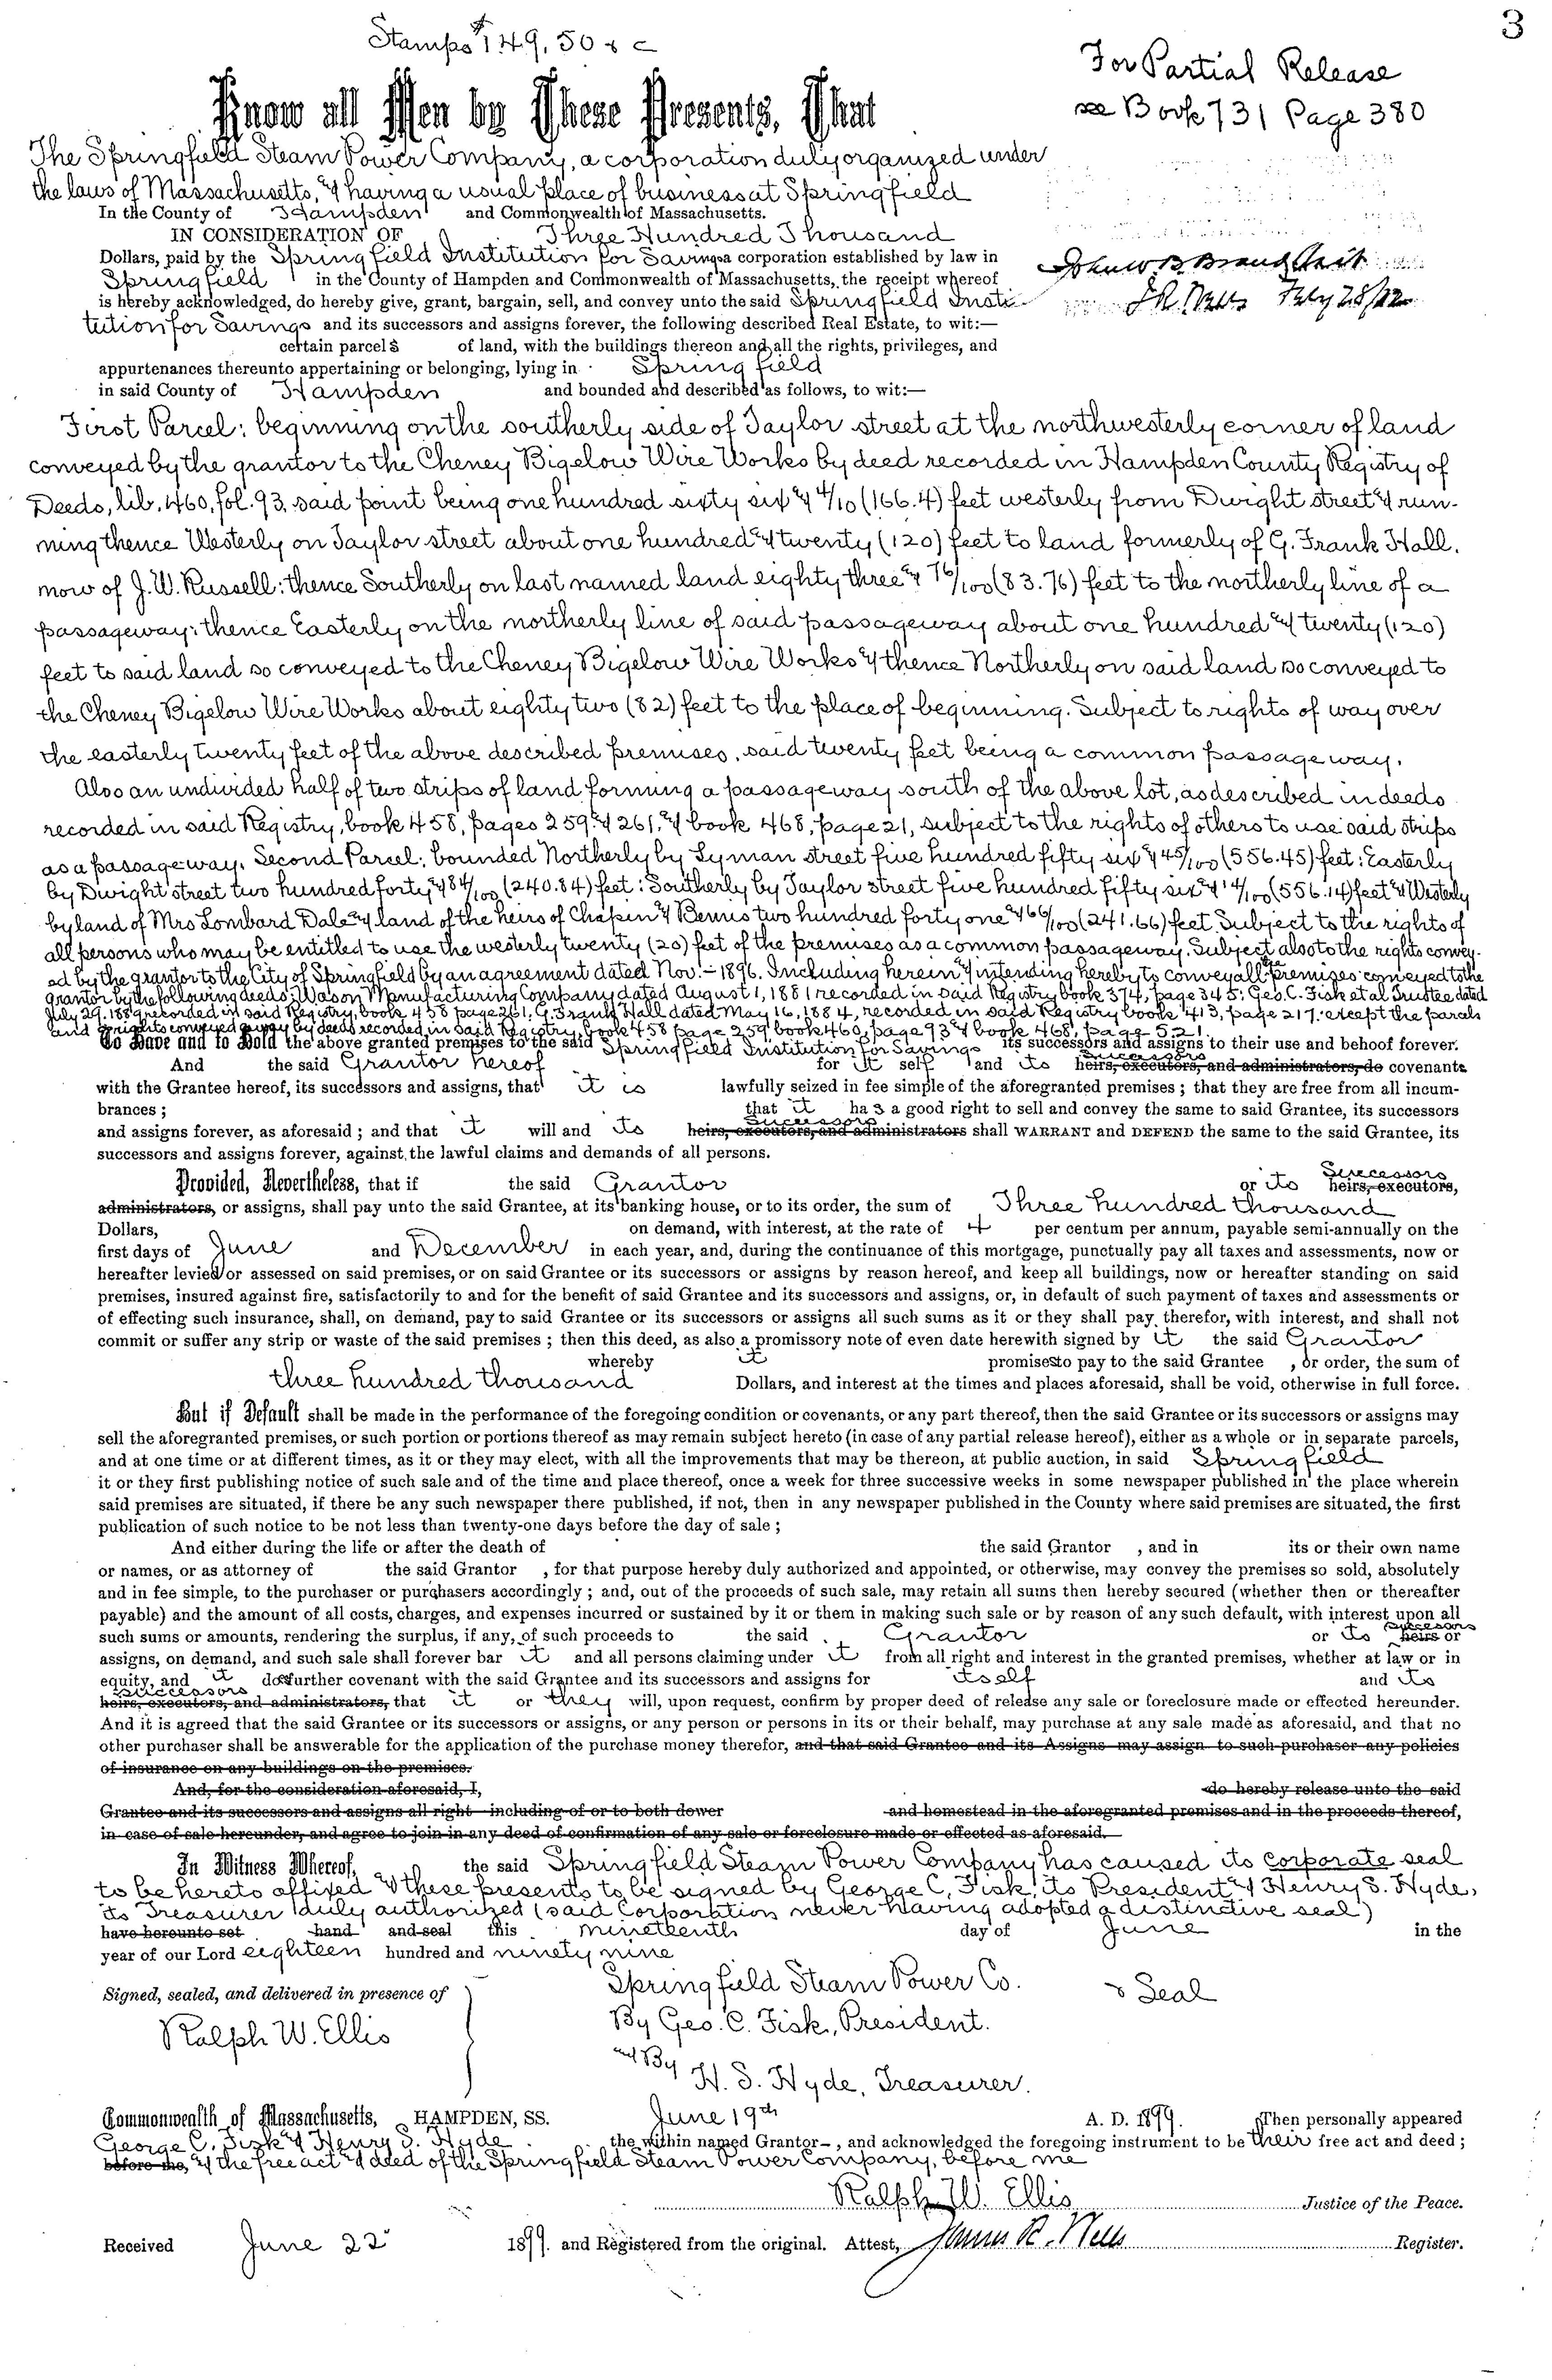 3
Stamps $149.50 & c
For Partial Release
see Book 731 Page 380
Know all Men by These Presents, That
The Springfield Steam Power Company, a corporation duly organized under
the laws of Massachusetts, & having a usual place of business at Springfield
In the County of Hampden and Commonwealth of Massachusetts.
IN CONSIDERATION OF Three Hundred Thousand
Dollars, paid by the Springfield Institution for Savings a corporation established by law in
Springfield in the County of Hampden and Commonwealth of Massachusetts, the receipt whereof
is hereby acknowledged, do hereby give, grant, bargain, sell, and convey unto the said Springfield Insti-
tution for Savings and its successors and assigns forever, the following described Real Estate, to wit:—
certain parcels of land, with the buildings thereon and all the rights, privileges, and
appurtenances thereunto appertaining or belonging, lying in Springfield
in said County of Hampden and bounded and described as follows, to wit:—
First Parcel: beginning on the southerly side of Taylor street at the northwesterly corner of land
conveyed by the grantor to the Cheney Bigelow Wire Works by deed recorded in Hampden County Registry of
Deeds, lib. 460, fol. 93, said point being one hundred sixty six & 4/10 (166.4) feet westerly from Dwight street & run-
ning thence Westerly on Taylor street about one hundred & twenty (120) feet to land formerly of G. Frank Hall,
now of J. W. Russell: thence Southerly on last named land eighty three & 76/100 (83.76) feet to the northerly line of a
passageway: thence Easterly on the northerly line of said passageway about one hundred & twenty (120)
feet to said land so conveyed to the Cheney Bigelow Wire Works & thence Northerly on said land so conveyed to
the Cheney Bigelow Wire Works about eighty two (82) feet to the place of beginning. Subject to rights of way over
the easterly twenty feet of the above described premises, said twenty feet being a common passageway.
Also an undivided half of two strips of land forming a passageway south of the above lot, as described in deeds
recorded in said Registry, book 458, pages 259 & 261, & book 468, page 21, subject to the rights of others to use said strips
as a passageway. Second Parcel: bounded Northerly by Lyman street five hundred fifty six & 45/100 (556.45) feet: Easterly
by Dwight street two hundred forty & 84/100 (240.84) feet: Southerly by Taylor street five hundred fifty six & 14/100 (556.14) feet & Westerly
by land of Mrs Lombard Dale & land of the heirs of Chapin & Bemis two hundred forty one & 66/100 (241.66) feet. Subject to the rights of
all persons who may be entitled to use the westerly twenty (20) feet of the premises as a common passageway. Subject also to the rights convey-
ed by the grantor to the City of Springfield by an agreement dated Nov. — 1896. Including herein & intending hereby to convey all the premises conveyed to the
grantor by the following deeds: Wason Manufacturing Company dated August 1, 1881 recorded in said Registry book 374, page 345: Geo. C. Fisk et al Trustee dated
July 29, 1889 recorded in said Registry, book 458 page 261, G. Frank Hall dated May 16, 1884, recorded in said Registry book 413, page 217: except the parcels
land & rights conveyed away by deeds recorded in said Registry, book 458 page 259, book 460, page 93 & book 468, page 521.
To Have and to Hold the above granted premises to the said Springfield Institution for Savings its successors and assigns to their use and behoof forever.
And the said Grantor hereof for it self and its successors heirs, executors, and administrators, do covenants
with the Grantee hereof, its successors and assigns, that it is lawfully seized in fee simple of the aforegranted premises; that they are free from all incum-
brances; that it has a good right to sell and convey the same to said Grantee, its successors
and assigns forever, as aforesaid; and that it will and its successors heirs, executors, and administrators shall WARRANT and DEFEND the same to the said Grantee, its
successors and assigns forever, against the lawful claims and demands of all persons.
Provided, Nevertheless, that if the said Grantor or its Successors heirs, executors,
administrators, or assigns, shall pay unto the said Grantee, at its banking house, or to its order, the sum of Three hundred thousand
Dollars, on demand, with interest, at the rate of 4 per centum per annum, payable semi-annually on the
first days of June and December in each year, and, during the continuance of this mortgage, punctually pay all taxes and assessments, now or
hereafter levied or assessed on said premises, or on said Grantee or its successors or assigns by reason hereof, and keep all buildings, now or hereafter standing on said
premises, insured against fire, satisfactorily to and for the benefit of said Grantee and its successors and assigns, or, in default of such payment of taxes and assessments or
of effecting such insurance, shall, on demand, pay to said Grantee or its successors or assigns all such sums as it or they shall pay therefor, with interest, and shall not
commit or suffer any strip or waste of the said premises; then this deed, as also a promissory note of even date herewith signed by it the said Grantor
whereby it promises to pay to the said Grantee , or order, the sum of
three hundred thousand Dollars, and interest at the times and places aforesaid, shall be void, otherwise in full force.
But if Default shall be made in the performance of the foregoing condition or covenants, or any part thereof, then the said Grantee or its successors or assigns may
sell the aforegranted premises, or such portion or portions thereof as may remain subject hereto (in case of any partial release hereof), either as a whole or in separate parcels,
and at one time or at different times, as it or they may elect, with all the improvements that may be thereon, at public auction, in said Springfield
it or they first publishing notice of such sale and of the time and place thereof, once a week for three successive weeks in some newspaper published in the place wherein
said premises are situated, if there be any such newspaper there published, if not, then in any newspaper published in the County where said premises are situated, the first
publication of such notice to be not less than twenty-one days before the day of sale;
And either during the life or after the death of the said Grantor , and in its or their own name
or names, or as attorney of the said Grantor , for that purpose hereby duly authorized and appointed, or otherwise, may convey the premises so sold, absolutely
and in fee simple, to the purchaser or purchasers accordingly; and, out of the proceeds of such sale, may retain all sums then hereby secured (whether then or thereafter
payable) and the amount of all costs, charges, and expenses incurred or sustained by it or them in making such sale or by reason of any such default, with interest upon all
such sums or amounts, rendering the surplus, if any, of such proceeds to the said Grantor or its successors heirs or
assigns, on demand, and such sale shall forever bar it and all persons claiming under it from all right and interest in the granted premises, whether at law or in
equity, and it does further covenant with the said Grantee and its successors and assigns for itself and its
successors heirs, executors, and administrators, that it or they will, upon request, confirm by proper deed of release any sale or foreclosure made or effected hereunder.
And it is agreed that the said Grantee or its successors or assigns, or any person or persons in its or their behalf, may purchase at any sale made as aforesaid, and that no
other purchaser shall be answerable for the application of the purchase money therefor, and that said Grantee and its Assigns may assign to such purchaser any policies
of insurance on any buildings on the premises.
And, for the consideration aforesaid, I, do hereby release unto the said
Grantee and its successors and assigns all right including of or to both dower and homestead in the aforegranted premises and in the proceeds thereof,
in case of sale hereunder, and agree to join in any deed of confirmation of any sale or foreclosure made or effected as aforesaid.
In Witness Whereof, the said Springfield Steam Power Company has caused its corporate seal
to be hereto affixed & these presents to be signed by George C. Fisk, its President & Henry S. Hyde,
its Treasurer duly authorized (said Corporation never having adopted a distinctive seal)
have hereunto set hand and seal this nineteenth day of June in the
year of our Lord eighteen hundred and ninety nine
Signed, sealed, and delivered in presence of
Ralph W. Ellis
Springfield Steam Power Co. & Seal
By Geo. C. Fisk, President.
and By H. S. Hyde, Treasurer.
Commonwealth of Massachusetts, HAMPDEN, SS. June 19th A. D. 1899. Then personally appeared
George C. Fisk & Henry S. Hyde the within named Grantor–, and acknowledged the foregoing instrument to be their free act and deed;
before me, & the free act & deed of the Springfield Steam Power Company, before me
Ralph W. Ellis Justice of the Peace.
Received June 22 1899. and Registered from the original. Attest, James R. Wells Register.